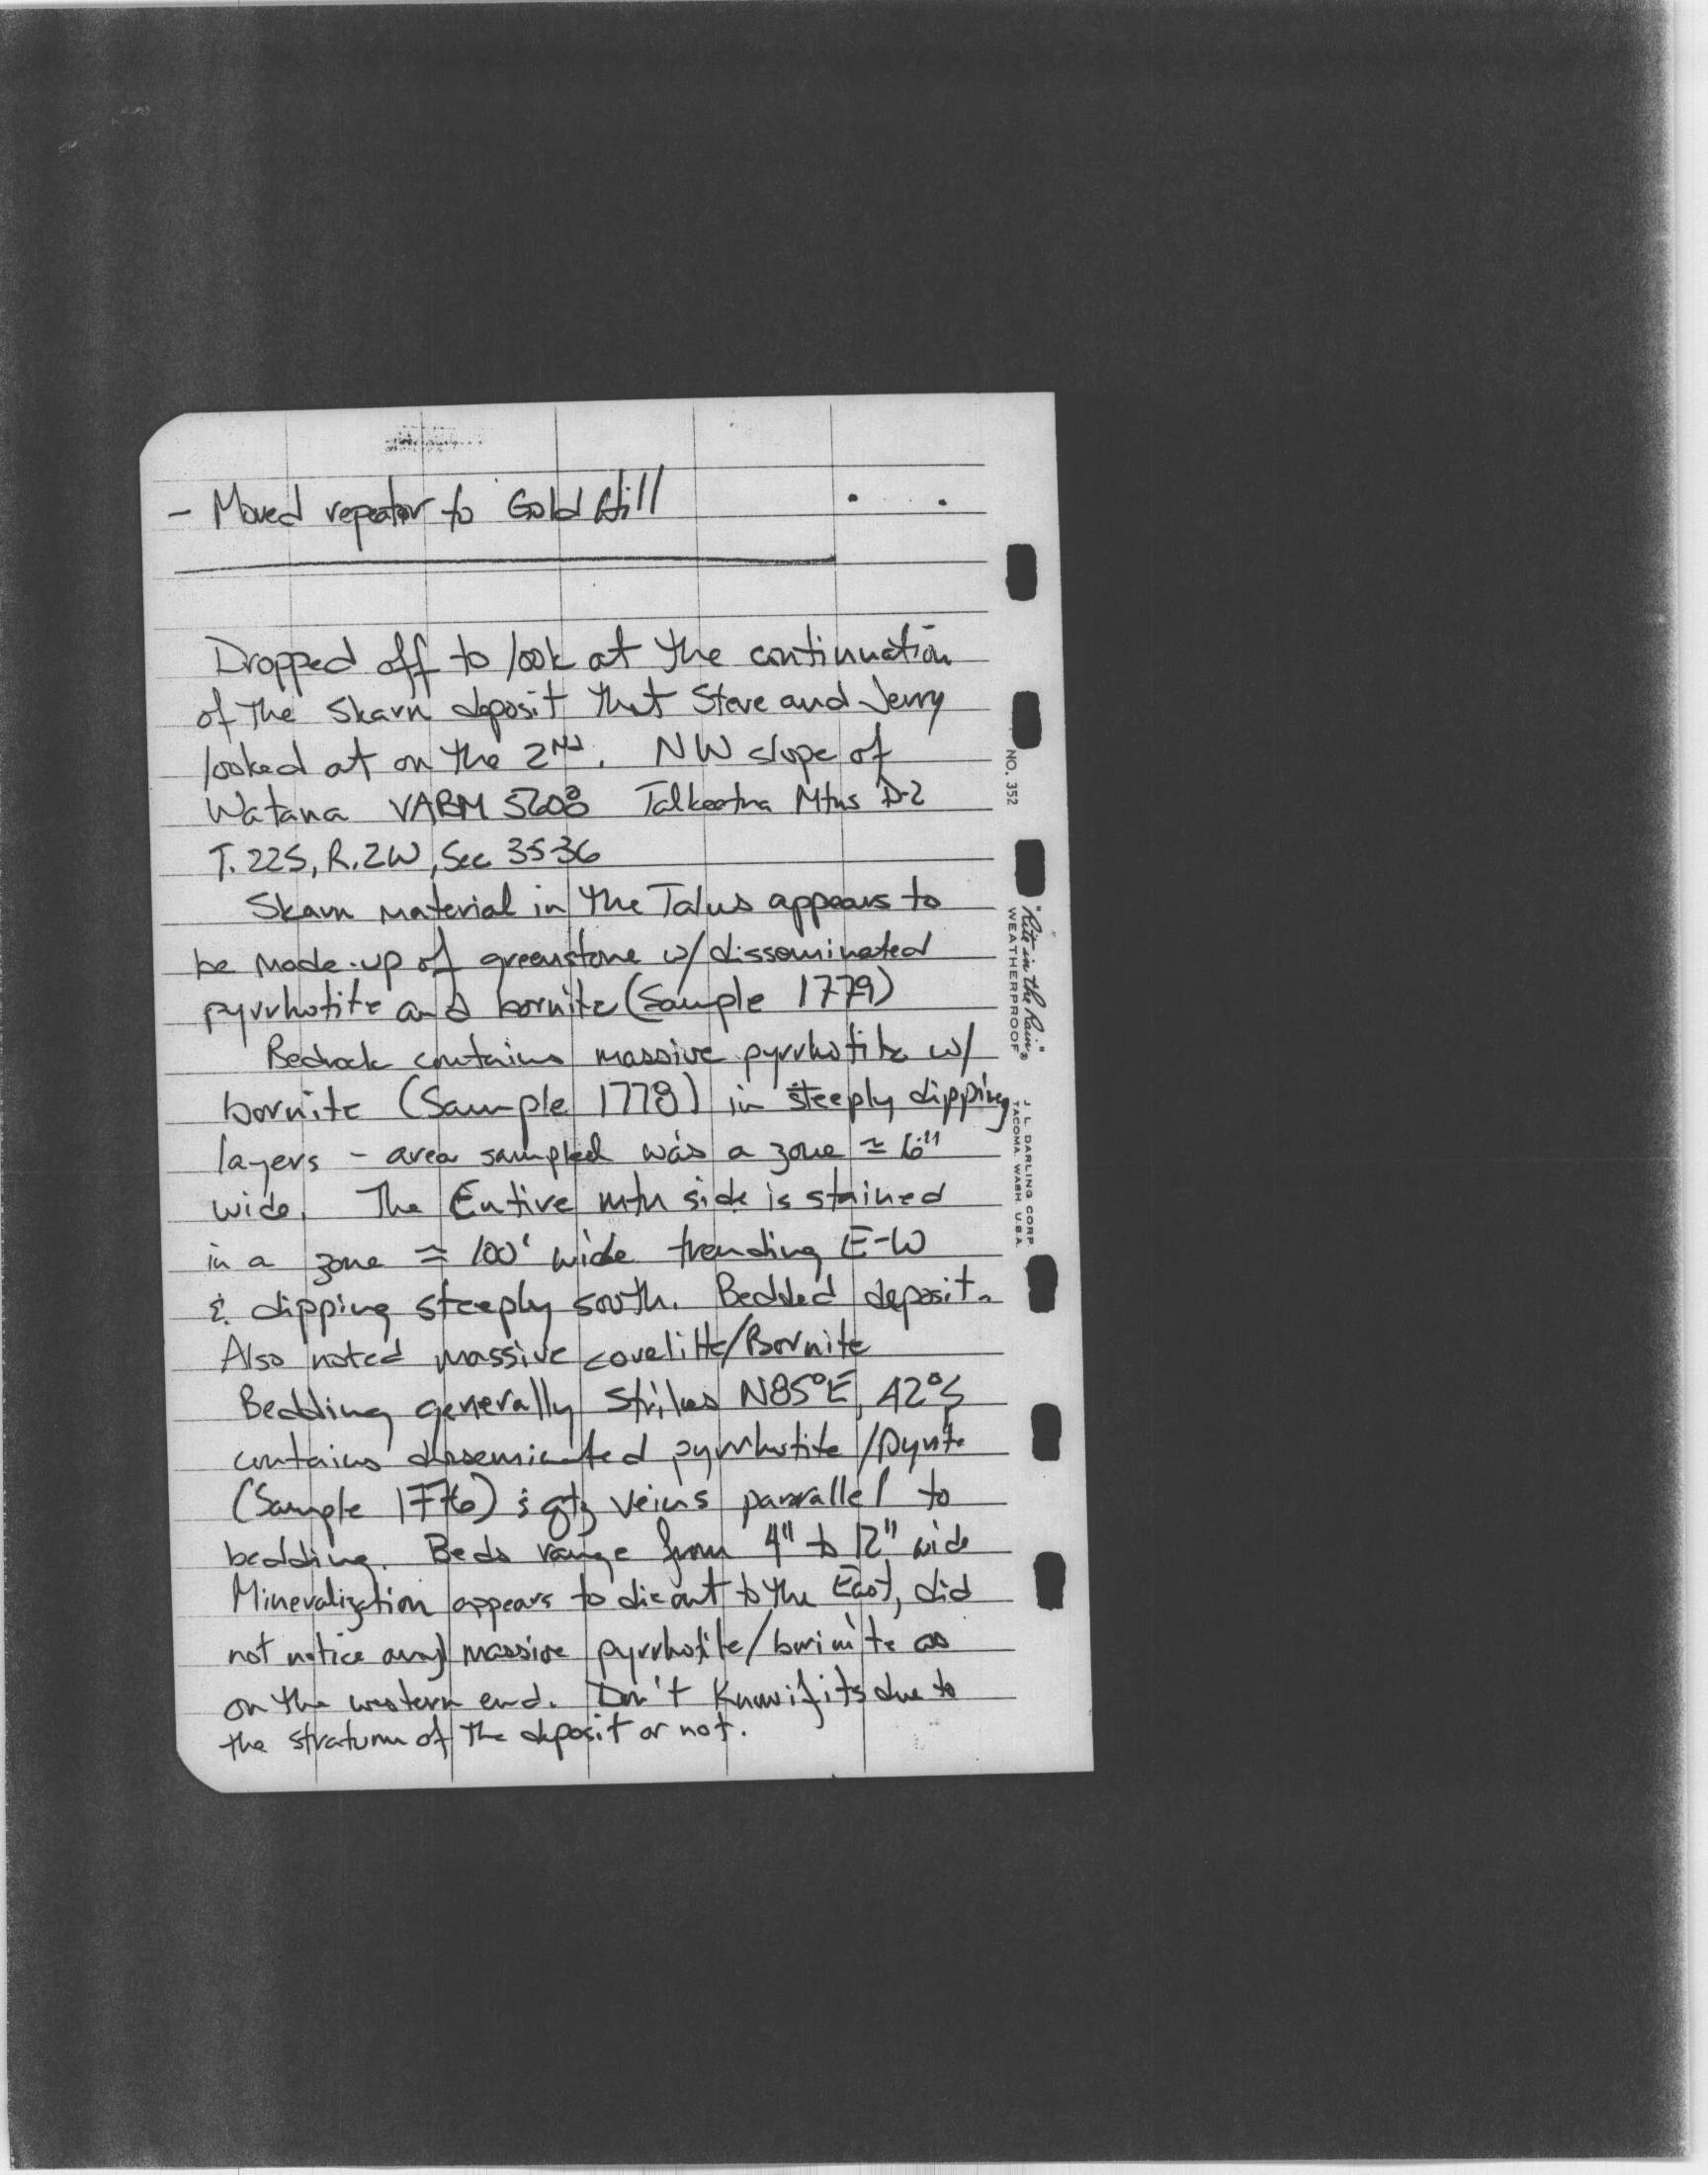 - Moved repeator to Gold Hill
Dropped off to look at the continuation
of the Skarn deposit that Steve and Jerry
looked at on the 2nd. NW slope of
Watana VABM 5608 Talkeetna Mtns D-2
T. 22S, R. 2W, Sec 35 36
Skarn material in the Talus appears to
be made-up of greenstone w/ disseminated
pyrrhotite and bornite (Sample 1779)
Bedrock contains massive pyrrhotite w/
bornite (Sample 1778) in steeply dipping
layers - area sampled was a zone ≃ 6"
wide. The Entire mtn side is stained
in a zone ≈ 100' wide trending E-W
& dipping steeply south. Bedded deposit.
Also noted massive covelitte/Bornite
Bedding generally Strikes N85°E, 42°S
contains dissemicated pyrrhotite /pyrite
(Sample 1776) & qtz veins parrallel to
bedding. Beds range from 4" to 12" wide
Mineralization appears to die out to the East, did
not notice any massive pyrrhotite/bornite as
on the western end. Don't Know if its due to
the stratum of the deposit or not.
NO. 352
"Rite in the Rain"®
WEATHERPROOF
J. L. DARLING CORP
TACOMA WASH U.S.A.